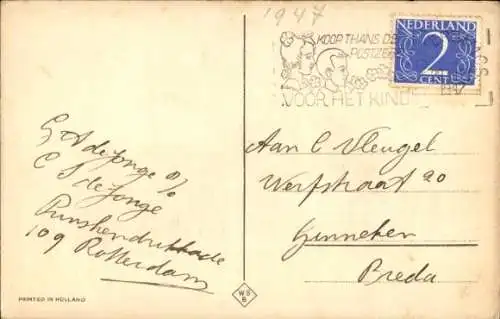 1947
KOOP THANS DE
POSTZE
VOOR HET KIND
NEDERLAND
2
CENT
G A de Jonge
C S de Jonge
109 Rotterdam
Aan C Vleugel
Werfstraat 20
Ginneken
Breda
PRINTED IN HOLLAND
W S
B